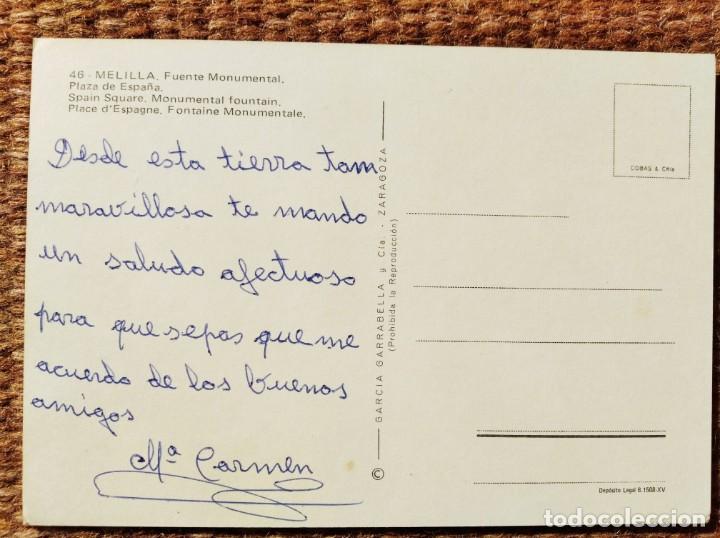 46 - MELILLA. Fuente Monumental.
Plaza de España.
Spain Square. Monumental fountain.
Place d'Espagne. Fontaine Monumentale.
Desde esta tierra tam
maravillosa te mando
un saludo afectuoso
para que sepas que me
acuerdo de los buenos
amigos
Mª Carmen
© GARCIA GARRABELLA y Cía. - ZARAGOZA
(Prohibida la Reproducción)
COBAS & Cñía
Depósito Legal B.1508-XV
todocoleccion